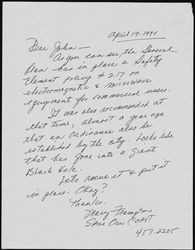 April 19-1994
Dear John -
As you can see, the General
Plan has in place a Safety
Element policy # 217 on
electromagnetic & microwave
equipment for commercial users.
It was also recommended at
that time, almost a year ago
that an Ordinance also be
established by the city. Looks like
that has gone into a Giant
Black hole.
Let's rescue it & put it
in place. Okay?
Thanks.
Mary
Save Our Coast
457-2205